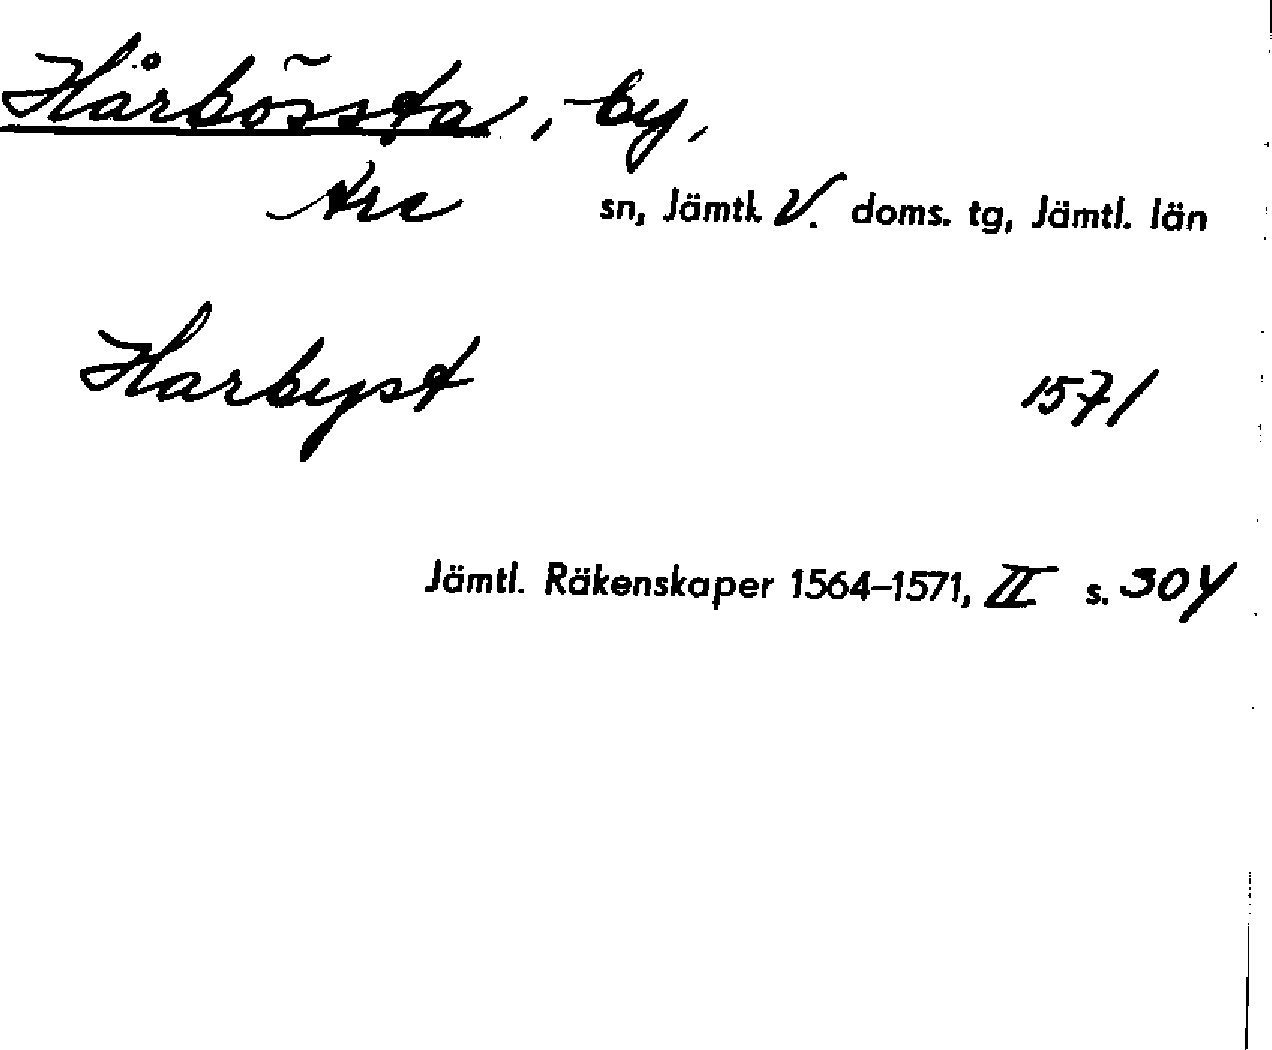 Hårbössta, by,
Are sn, Jämtl. V. doms. tg, Jämtl. län
Harbyst 1571
Jämtl. Räkenskaper 1564–1571, II s. 304